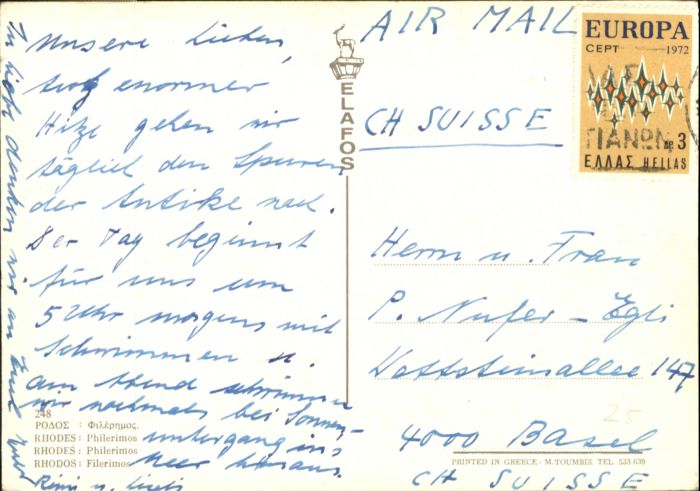 Unsere Lieben,
trotz enormer
Hitze gehen wir
täglich den Spuren
der Antike nach.
Der Tag beginnt
für uns um
5 Uhr morgens mit
Schwimmen u.
am Abend schwimmen
wir nochmals bei Sonnen-
untergang ins
Meer hinaus.
In
an
Rémi u.
248
ΡΟΔΟΣ : Φιλέρημος.
RHODES : Philerimos
RHODES : Philerimos
RHODOS : Filerimos
ELAFOS
AIR MAIL
CH SUISSE
EUROPA
CEPT 1972
ΔΡ 3
ΕΛΛΑΣ HELLAS
Herrn u. Frau
P. Nufer-Egli
Wettsteinallee 147
25
4000 Basel
PRINTED IN GREECE - M. TOUMBIS. TEL. 533 639
CH SUISSE